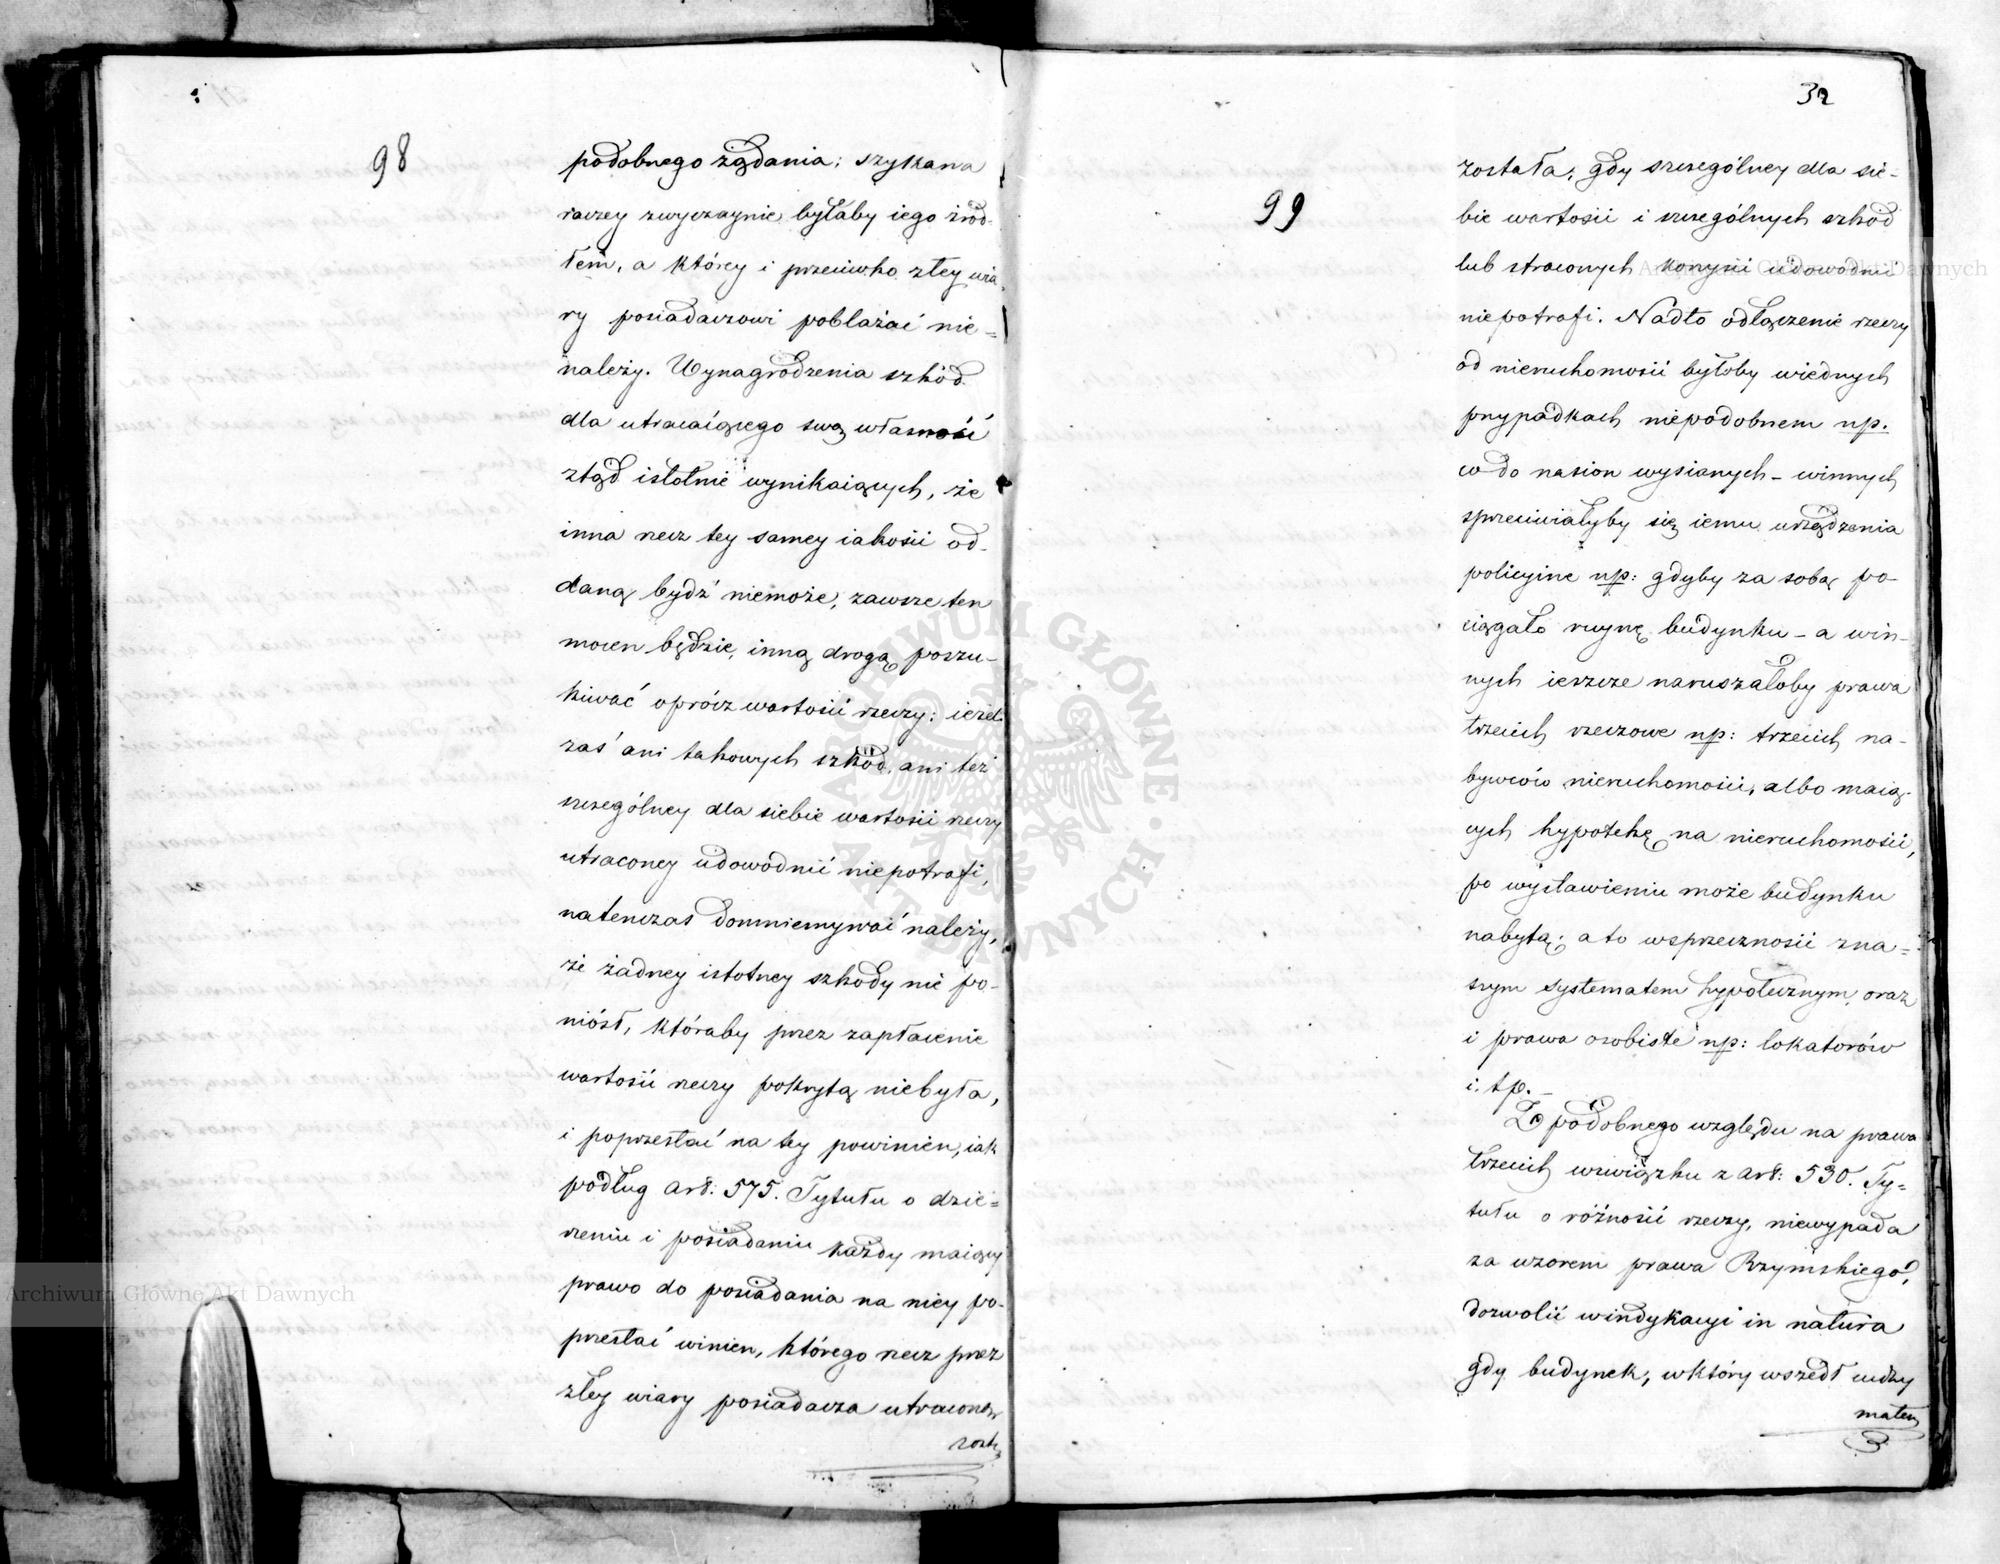 98
podobnego żądania; szykana
raczey zwyczaynie byłaby iego źród-
łem, a którey i przeciwko złey wia-
ry posiadaczowi pobłażać nie-
należy. Wynagrodzenia szkód
dla utracaiącego swą własność
ztąd istotnie wynikaiących, że
inna rzecz tey samey iakości od-
daną bydź niemoże, zawsze ten
mocen będzie, inną drogą poszu-
kiwać oprócz wartości rzeczy; ieżel.
zaś ani takowych szkód, ani też
szczególney dla siebie wartości rzeczy
utraconey udowodnić niepotrafi,
natenczas domniemywać należy,
że żadney istotney szkody nie po-
niósł, któraby przez zapłacenie
wartości rzeczy pokrytą niebyła,
i poprzestać na tey powinien, iak
podług art: 575. Tytułu o dzie-
rzeniu i posiadaniu każdy maiący
prawo do posiadania na niey po-
przestać winien, którego rzecz przez
złey wiary posiadacza utraconą
zosta
32
99
została; gdy szczególney dla sie-
bie wartości i szczególnych szkód
lub straconych korzyści udowodnić
niepotrafi. Nadto odłączenie rzeczy
od nieruchomości byłoby wiednych
przypadkach niepodobnem np.
co do nasion wysianych – winnych
sprzeciwiałyby się iemu urządzenia
policyine np: gdyby za sobą po-
ciągało ruynę budynku – a win-
nych ieszcze naruszałoby prawa
trzecich rzeczowe np: trzecich na-
bywców nieruchomości, albo maią-
cych hypotekę na nieruchomości,
po wystawieniu może budynku
nabytą; a to wsprzeczności zna-
szym systematem hypotecznym, oraz
i prawa osobiste np: lokatorów
i. tp. –
Z podobnego względu na prawa
trzecich wzwiązku z art: 530. Ty-
tułu o różności rzeczy, niewypada
za wzorem prawa Rzymskiego,
dozwolić windykacyi in natura
gdy budynek, wktóry wszedł cudzy
mater
Archiwum Główne Akt Dawnych
Archiwum Główne Akt Dawnych
ARCHIWUM GŁÓWNE AKT DAWNYCH